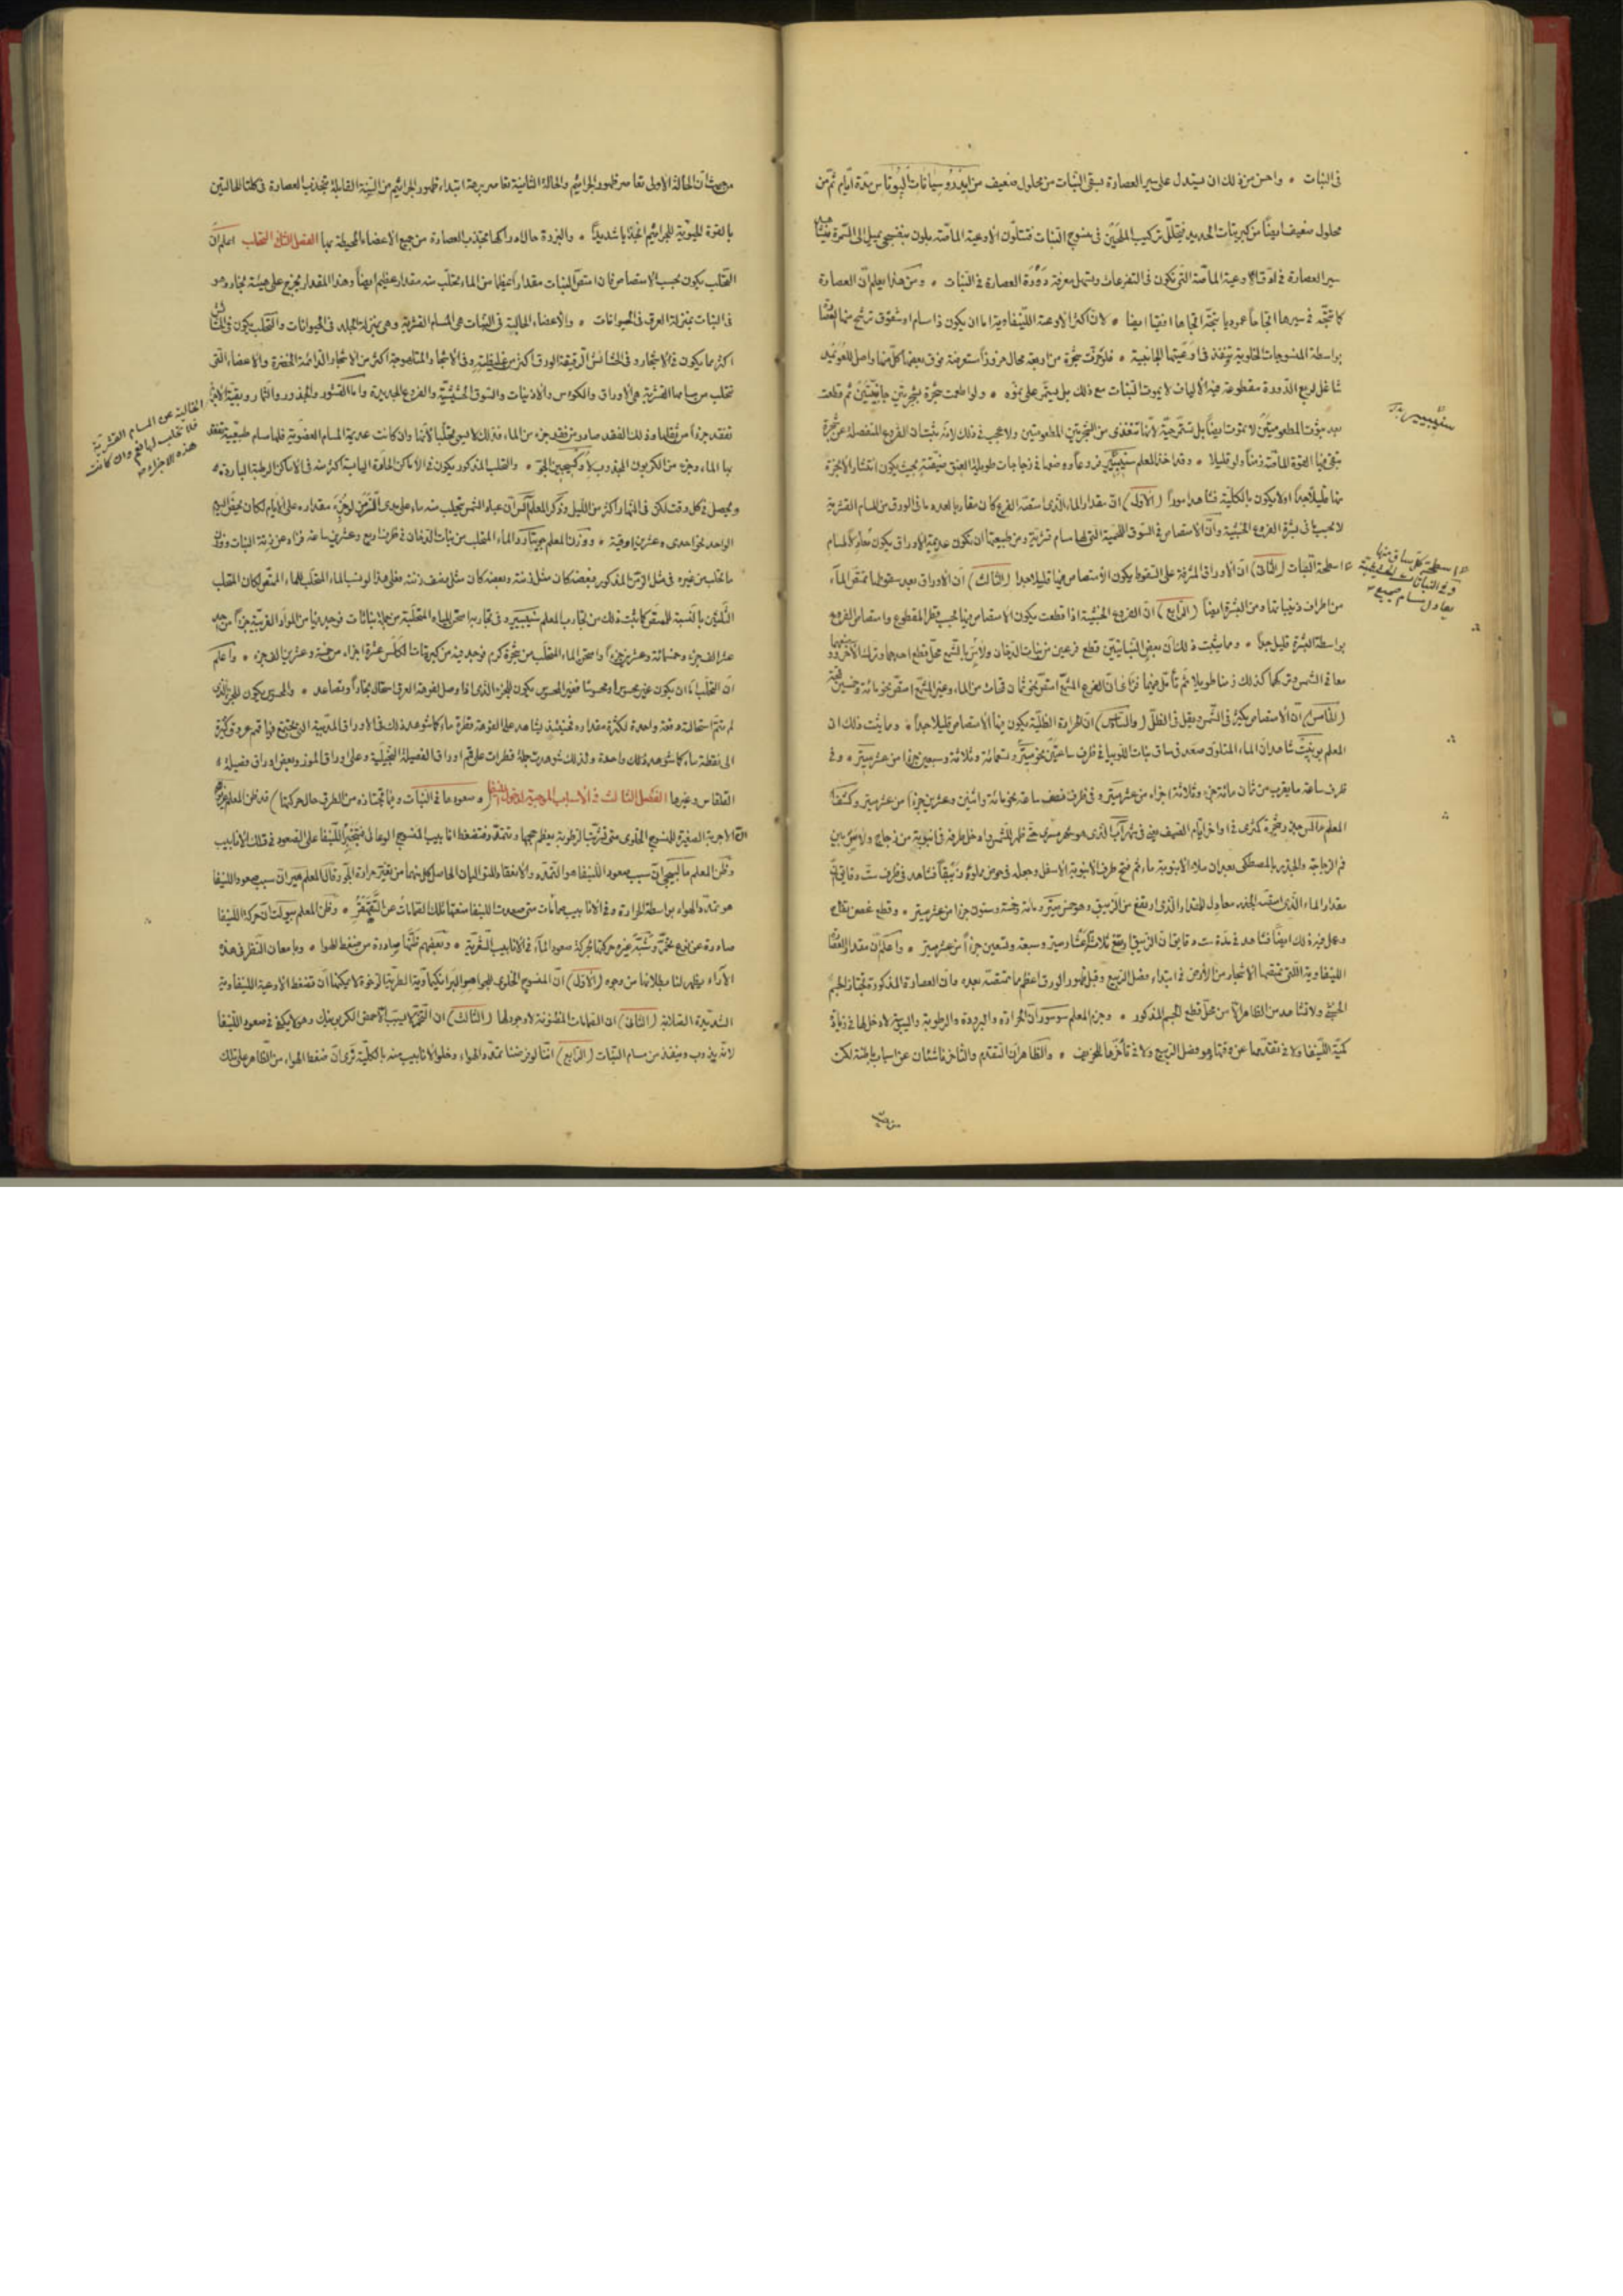 فى النبات ٠ واحسن من ذلك ان يستدل على سير العصارة بسقى النبات من محلول ضعيف من ايدروسيانات البوتاس مدة ايام ثم من
محلول ضعيف ايضا من كبريتات الحديد فيتخلل تركيب الملحين فى منسوج النبات فتتلون الاوعية الماصة بلون بنفسجى يميل الى السمرة
سير العصارة فى ادق الاوعية الماصة التى تكون فى التفرعات ويسهل معرفة دورة العصارة فى النبات ٠ ومن هذا يعلم ان العصارة
كما تتجه فى سيرها اتجاها عموديا تتجه اتجاها افقيا ايضا ٠ لان اكثر الاوعية اللينفاوية اما ان يكون ذا مسام او شقوق ترشح منها
بواسطة المنسوجات الخلوية وتنفذ فى اوعيتها الجانبية ٠ فلو حزت شجرة من اربعة محال حزوزا مستعرضة فوق بعضها كل منها واصل
شاغل لربع الدورة مقطوعة فيه الالياف لا يموت النبات مع ذلك بل يستمر على نموه ٠ ولو اطعمت شجرة بشجرتين جانبيتين ثم قطعت
بعد ثبوت المطعومتين لا تموت ايضا بل تستمر حية لانها تتغذى من الشجرتين المطعومتين ولا عجب فى ذلك لانه يثبت ان الفروع المنفصلة عن شجرة
تبقى فيها القوة الماصة زمنا ولو قليلا ٠ وقد اخذ المعلم سنيبيير فروعا ووضعها فى زجاجات طويلة العنق ضيقته بحيث يكون انتشار الابخرة
منها قليلا جدا او لا يكون بالكلية فشاهد امورا (الاول) ان مقدار الماء الذى امتصه الفرع كان مقاربا لعدد ما فى الورق من المسام القشرية
لا بحسب ما فى بشرة الفروع الخشبية وان الامتصاص فى السوق اللحمية التى لها مسام قشرية ومن طبيعتها ان تكون عديمة الاوراق يكون معادلا لمسام
اسطحة النبات (الثانى) ان الاوراق المشرفة على السقوط يكون الامتصاص فيها قليلا جدا (الثالث) ان الاوراق بعد سقوطها تمتص الماء
من اطراف ذنيباتها ومن البشرة ايضا (الرابع) ان الفروع الخشبية اذا قطعت يكون الامتصاص فيها بحسب قطر المقطوع وامتصاص الفروع
بواسطة البشرة قليل جدا ٠ ومما يثبت ذلك ان بعض النباتيين قطع فرعين من نبات الدخان ولاس بالشمع محل قطع احدهما وترك الاخر
معا فى الشمس وتركهما كذلك زمنا طويلا ثم تأمل فيهما فرأى ان الفرع المشمع امتص نحو ثمان قمحات من الماء وغير المشمع امتص نحو مائة وخمسين قمحة
(الخامس) ان الامتصاص يكثر فى الشمس ويقل فى الظل (والسادس) ان الحرارة الظلية يكون فيها الامتصاص قليلا جدا ٠ ومما يثبت ذلك ان
المعلم بونيت شاهد ان الماء المتلون صعد فى ساق نبات اللوبيا فى ظرف ساعتين نحو ميتر وتسعمائة وثلاثة وسبعين جزءا من عشر ميتر ٠ وفى
ظرف ساعة ما يقرب من ثمان مائة جزء وثلاثة اجزاء من عشر ميتر وفى ظرف نصف ساعة نحو مائة واثنين وعشرين جزءا من عشر ميتر وكشف
المعلم هالس جذر شجرة كمثرى فى اواخر ايام الصيف يعنى فى شهر آب الذى هو شهر مسرى حتى ظهر للشمس وادخل طرفه فى انبوبة من زجاج ولاس بين
فم الزجاجة والجذر بالمصطكى بعد ان ملاء الانبوبة ماء ثم فتح طرف الانبوبة الاسفل وجعله فى حوض مملوء زيبقا فشاهد فى ظرف ست دقائق ان
مقدار الماء الذى امتصه الجذر معادل للمقدار الذى ارتفع من الزيبق وهو خمس ميتر ومائة وخمسة وستون جزءا من عشر ميتر ٠ وقطع غصن تفاح
وعمل فيه ذلك ايضا فشاهد فى مدة ست دقايق ان الزيبق ارتفع ثلاث عشر ميتر وسبعة وتسعين جزءا من عشر ميتر ٠ واعلم ان مقدار
اللينفاوية التى تمتصها الاشجار من الارض فى ابتداء فصل الربيع وقبل ظهور الورق اعظم مما تمتصه بعده وان العصارة المذكورة تجتاز الجسم
الخشبى ولا تشاهد من الظاهر الا من محل قطع الجسم المذكور ٠ وجزم المعلم سوسور ان الحرارة والبرودة والرطوبة واليبس لا دخل لها فى زيادة
كمية اللينفا ولا فى تقدمها عن وقتها وهو فصل الربيع ولا فى تأخرها للخريف ٠ والظاهر ان التقدم والتأخر ناشئان عن اسباب باطنة لكن
سنيبيير
اسطحة كل ساق منها
وفى النباتات الحقيقية
يعادل مسام جميع
من حيث ان الحالة الاولى تعاصر ظهور الجراثيم والحالة الثانية تعاصر برهة ابتداء ظهور الجراثيم من السنة القابلة تنجذب العصارة فى كلتا الحالتين
بالقوة الحيوية للجراثيم انجذابا شديدا ٠ والبزرة حال ادراكها تجذب العصارة من جميع الاعضاء المحيطة بها الفصل الثانى التحلب اعلم ان
التحلب يكون بحسب الامتصاص فان امتص النبات مقدارا عظيما من الماء تحلب منه مقدار عظيم ايضا وهذا المقدار يخرج على هيئة بخار وهو
فى النبات بمنزلة العرق فى الحيوانات ٠ والاعضاء الحالبة فى النبات هى المسام القشرية وهى بمنزلة الجلد فى الحيوانات والتحلب يكون فى
اكثر مما يكون فى الاشجار وفى الحشائش الرقيقة الورق اكثر من غليظته وفى الاشجار المتلصومة اكثر من الاشجار الدائمة الخضرة والاعضاء التى
تتحلب من مسامها القشرية هى الاوراق والكؤس والاذنيات والسوق الحشيشية والفروع الجديدة واما القشور والجذور والثمار وبقية
تفقد جزءا من ثقلها وذلك الفقد صادر من فقد جزء من الماء فذلك لا يسمى تحلبا لانها وان كانت عديمة المسام العضوية فلها مسام طبيعية تفقد
بها الماء وجزء من الكربون المجذوب لاوكسجين الجو ٠ والتحلب المذكور يكون فى الاماكن الحارة اليابسة اكثر منه فى الاماكن الرطبة الباردة
ويحصل فى كل وقت لكن فى النهار اكثر من الليل وذكر المعلم هالس ان عباد الشمس تحلب منه ماء على مدى
الواحد نحو احدى وعشرين اوقية ٠ ووزن المعلم جويتار والماء المتحلب من نبات الدخان فى ظرف اربع وعشرين ساعة فزاد عن زنة النبات
ما تحلب من غيره فى مثل الزمن المذكور فبعضه كان مثل زنته وبعضه كان مثل نصف زنته فعلى هذا لو نسب الماء المتحلب للماء الممتص لكان المتحلب
الثلثين بالنسبة للممتص كما يثبت ذلك من تجارب المعلم سنيبيير وفى تجاربه امتحن المياه المتحلبة من جملة نباتات فوجد فيها من المواد الغريبة جزءا من
عشر الف جزء وخمسمائة وعشرين جزءا وامتحن الماء المتحلب من شجرة كرم فوجد فيه من كبريتات الكلس عشرة اجزاء من خمسة وعشرين الف جزء ٠ واعلم
ان التحلب اما ان يكون غير محسوس او محسوسا فغير المحسوس يكون للجزء الذى اذا وصل لفوهة العرق استحال بخارا وتصاعد ٠ والمحسوس يكون للجزء الذى
لم تتم استحالته دفعة واحدة لكثرة مقداره فحينئذ يشاهد على الفوهة قطرة ماء كما شوهد ذلك فى الاوراق المدببة التى تجتمع فيها قمم عروق كثيرة
الى نقطة ماء كما شوهد ذلك واحدة ولذلك شوهدت جملة قطرات على قمم اوراق الفصيلة النجيلية وعلى اوراق الموز وبعض اوراق فصيلة
القلقاس وغيرها الفصل الثالث فى الاسباب الموجبة لدخول اللينفا (وصعودها فى النبات وفيما تجتازه من الطرق حال حركتها) قد ظن المعلم
الاجربة الصغيرة للمنسوج الخلوى متى تشربت الرطوبة يعظم حجمها وتتمدد فتضغط انابيب المنسوج الوعائى فتنجبر اللينفا على الصعود فى تلك الانابيب
وظن المعلم مالبيجى ان سبب صعود اللينفا هو التمدد والانقباض المتواليان الحاصل كل منهما من تغير حرارة الجو وقال المعلم ان سبب صعود اللينفا
هو تمدد الهواء بواسطة الحرارة وفى الانابيب صمامات متى صعدت اللينفا منعتها تلك الصمامات عن التقهقر ٠ وظن المعلم ان حركة اللينفا
صادرة عن نوع تخمر وشبه غيره حركتها بحركة صعود الماء فى الانابيب الشعرية ٠ وبعضهم ظنها صادرة من ضغط الهوا ٠ وبامعان النظر فى هذه
الآراء يظهر لنا بطلانها من وجوه (الاول) ان المنسوج الخلوى للجواهر البرانشيماوية الطرية الرخوة لا يمكنها ان تضغط الاوعية اللينفاوية
الشديدة الصلابة (الثانى) ان الصمامات المظنونة لا وجود لها (الثالث) ان التخمر لا يسبب الا حمض الكربونيك وهو لا يكفى فى صعود اللينفا
لانه يذوب وينفذ من مسام النبات (الرابع) اننا لو فرضنا تمدد الهواء وخلو الانابيب منه بالكلية نرى ان ضغط الهواء من الظاهر على تلك
الخالية عن المسام القشرية
فلا تحلب لها فهى وان كانت
هذه الاجزاء
من حيث